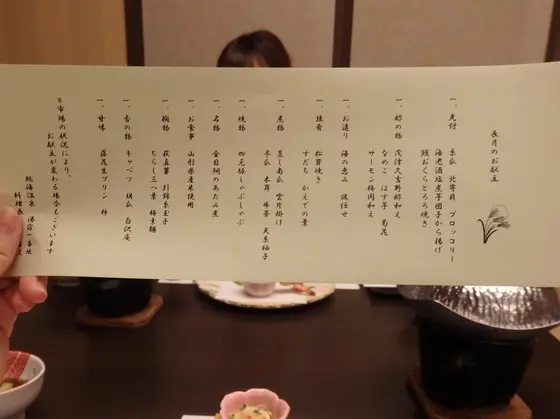 長月のお献立
一、先付 糸瓜 北寄貝 ブロッコリー
海老酒塩煮 芋団子から揚げ
鮭おくらとろろ焼き
一、酢の物 茂津久吉野酢和え
なめこ はす芋 菊花
サーモン梅肉和え
一、お造り 海の恵み 板任せ
一、強肴 松茸焼き
すだち かえでの葉
一、煮物 蒸し南瓜 雲片掛け
冬瓜 木耳 牛蒡 天糸柚子
一、焼物 四元豚しゃぶしゃぶ
一、名物 金目鯛のあたみ煮
一、お食事 山形県産米使用
一、椀物 萩真薯 引錦糸玉子
ちらし三つ葉 梅素麺
一、香の物 キャベツ 胡瓜 白沢庵
一、甘味 落花生プリン 柿
※市場の状況により、
お献立が変わる場合もございます
熱海温泉 湯宿一番地
料理長